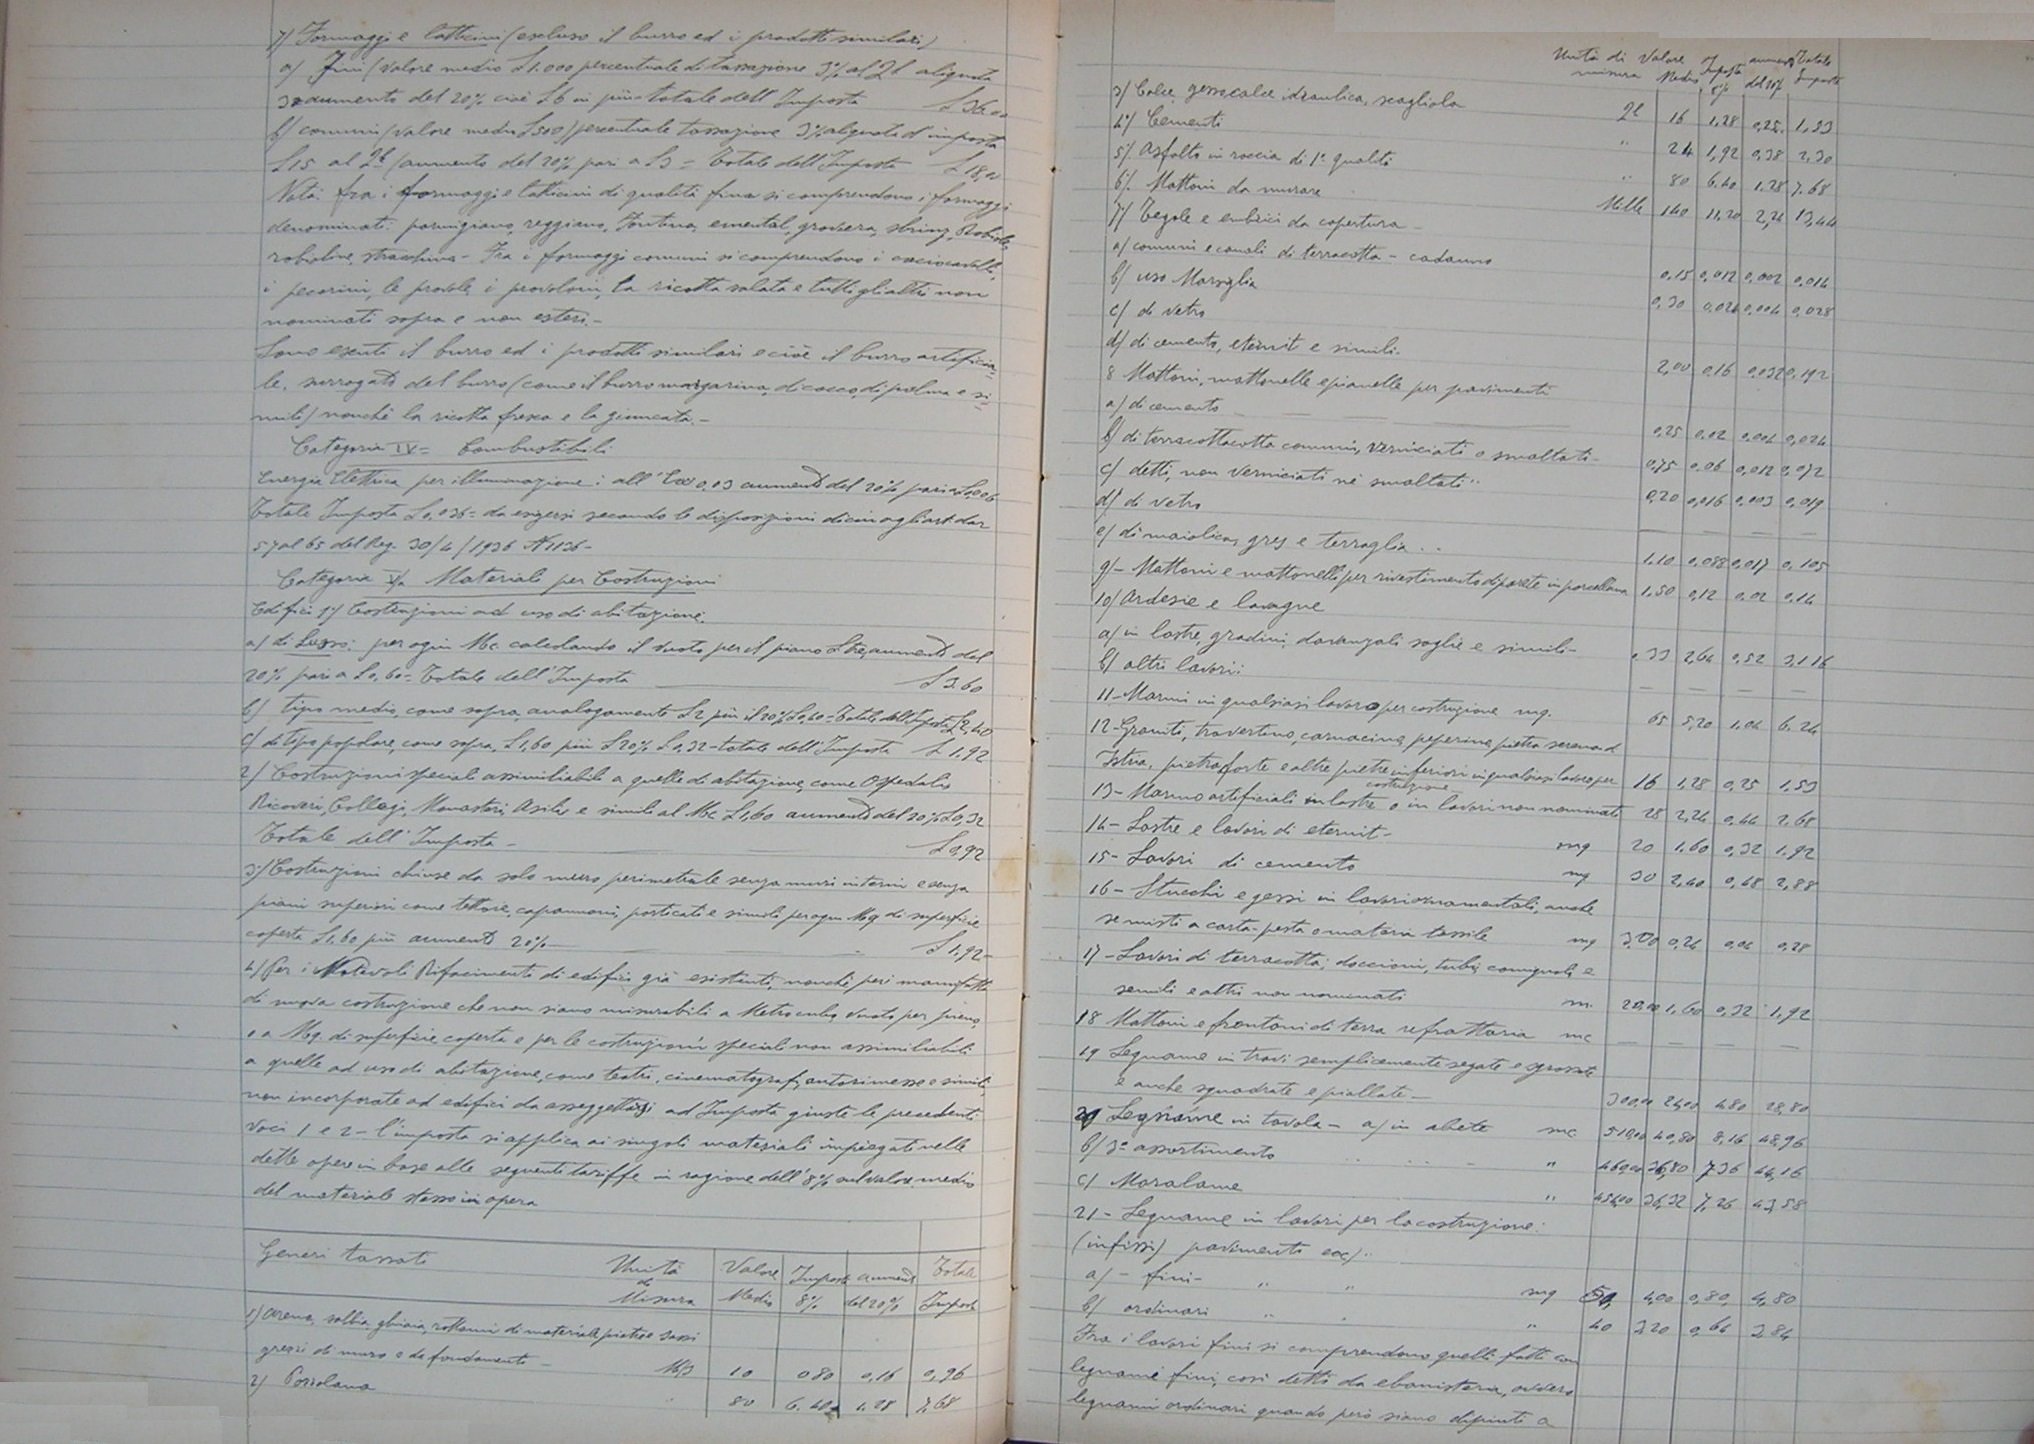 7) Formaggi e latticini (escluso il burro ed i prodotti similari)
a) Fini (valore medio £ 1.000 percentuale di tassazione 3% al Ql aliquota
30 aumento del 20% cioè £ 6 in più - totale dell'Imposta £ 36.00
b) comuni (valore medio £ 500) percentuale tassazione 3% aliquota d'imposta
£ 15 al Ql (aumento del 20% pari a £ 3 = Totale dell'Imposta £ 18,00
Nota. fra i formaggi e latticini di qualità fina si comprendono i formaggi
denominati: parmigiano, reggiano, fontina, emental, groviera, sbrinz, Robiola
robioline, stracchino - Fra i formaggi comuni si comprendono i caciocavalli,
i pecorini, le provole, i provoloni, la ricotta salata e tutti gli altri non
nominati sopra e non esteri.-
Sono esenti il burro ed i prodotti similari e cioè il burro artificia-
le, surrogati del burro (come il burro margarina, di cocco, di palma e si-
mili) nonchè la ricotta fresca e la giuncata.-
Categoria IV = Combustibili
Energia Elettrica per illuminazione: all' 0,03 aumento del 20% pari a £ 0,006
Totale Imposta £ 0,036 = da esigersi secondo le disposizioni di cui agli art. dar
57 al 65 del Reg. 30/4/1936 N 1136-
Categoria V Materiali per Costruzioni
Edifici 1°) Costruzioni ad uso di abitazione.
a) di Lusso: per ogni Mc calcolando il vuoto per il pieno £ tre, aumento del
20% pari a £ 0,60 = Totale dell'Imposta £ 3.60
b) tipo medio, come sopra, analogamente £ 2 più il 20% £ 0,40 = Totale dell'Imposta £ 2,40
c) di tipo popolare, come sopra, £ 1,60 più £ 20% £ 0,32 - totale dell'Imposta £ 1.92
2) Costruzioni speciali assimiliabili a quelle di abitazione, come Ospedali
Ricoveri, Collegi, Monasteri, Asili e simili al Mc £ 1,60 aumento del 20% £ 0,32
Totale dell'Imposta - £ 0,92
3°) Costruzioni chiuse da solo muro perimetrale senza muri interni e senza
piani superiori come tettoie, capannoni, porticati e simili per ogni Mq di superficie
coperta £ 1,60 più aumento 20% £ 1,92 -
4) Per i Notevoli Rifacimenti di edifici già esistenti, nonchè per i manufatti
di nuova costruzione che non siano misurabili a Metro cubo, vuoto per pieno,
o a Mq. di superficie coperta e per le costruzioni speciali non assimiliabili
a quelle ad uso di abitazione, come teatri, cinematografi, autorimesse e simili,
non incorporate ad edifici da assoggettarsi ad Imposta giuste le precedenti
voci 1 e 2 - l'imposta si applica ai singoli materiali impiegati nelle
dette opere in base alle seguenti tariffe in ragione dell'8% sul valore medio
del materiale stesso in opera
Generi tassati Unità di Misura Valore Medio Imposta 8% aumento del 20% Totale Imposta
1) Arena, sabbia, ghiaia, rottami di materiale pietre e sassi
grezzi di muro o da fondamento - M3 10 0 80 0,16 0,96
2) Pozzolana 80 6.40 1.28 7,68
Unità di misura Valore Medio Imposta 8% aumento del 20% Totale Imposta
3) Calce, gesso, calce idraulica, scagliola Ql 16 1,28 0,25. 1.53
4°) Cementi " 24 1,92 0,38 2,30
5°) Asfalto in roccia di 1a qualità " 80 6.40 1.28 7.68
6°) Mattoni da murare Mille 140 11,20 2,24 13,44
7°) Tegole e embrici da copertura -
a) comuni e canali di terracotta - cadauno 0,15 0,012 0,002 0,014
b) uso Marsiglia 0,30 0,024 0,004 0,028
c) di vetro
d) di cemento, eternit e simili. 2,00 0,16 0,032 0,192
8 Mattoni, mattonelle e pianelle per pavimenti
a) di cemento 0,25 0,02 0,004 0,024
b) di terracotta comuni, verniciati o smaltati - 0,75 0,06 0,012 0,072
c) detti, non verniciati nè smaltati " 0,20 0,016 0,003 0,019
d) di vetro — — — —
e) di maiolica, gres e terraglia . . 1.10 0,088 0,017 0,105
9 - Mattoni e mattonelle per rivestimento di parete in porcellana 1.50 0,12 0,02 0,14
10) Ardesie e lavagne
a) in lastre, gradini, davanzali soglie e simili - 33 2,64 0,52 3,116
b) altri lavori: — — — —
11 - Marmi in qualsiasi lavoro per costruzione mq. 65 5,20 1,04 6.24
12 - Graniti, travertino, carnacina, peperino, pietra serena d
Istria, pietraforte e altre pietre inferiori in qualsiasi lavoro per costruzione 16 1,28 0,25 1,53
13 - Marmo artificiali in lastre o in lavori non nominati 28 2,24 0,44 2,68
14 - Lastre e lavori di eternit - mq 20 1.60 0,32 1,92
15 - Lavori di cemento mq 30 2,40 0,48 2,88
16 - Stucchi e gessi in lavori ornamentali, anche
se misti a carta-pesta o materia tessile mq 3,00 0,24 0,04 0,28
17 - Lavori di terracotta; doccioni, tubi, comignoli e
simili e altri non nominati m. 20,00 1,60 0,32 1,92
18 Mattoni e frontoni di terra refrattaria mc — — — —
19 Legname in travi semplicemente segate o sgrossate
e anche squadrate e piallate - 300,00 24,00 4.80 28,80
20 Legname in tavola - a) in abete mc 510,00 40,80 8,16 48,96
b) 3° assortimento " 460,00 36,80 7.36 44,16
c) Moralame " 454,00 36,32 7,26 43,58
21 - Legname in lavori per la costruzione:
(infissi) pavimento ecc).
a) - fini - " " mq 50, 4,00 0,80, 4,80
b) ordinari " " 40 3,20 0,64 3,84
Fra i lavori fini si comprendono quelli fatti con
legname fini, così detti da ebanisteria, ovvero
legnami ordinari quando però siano dipinti a